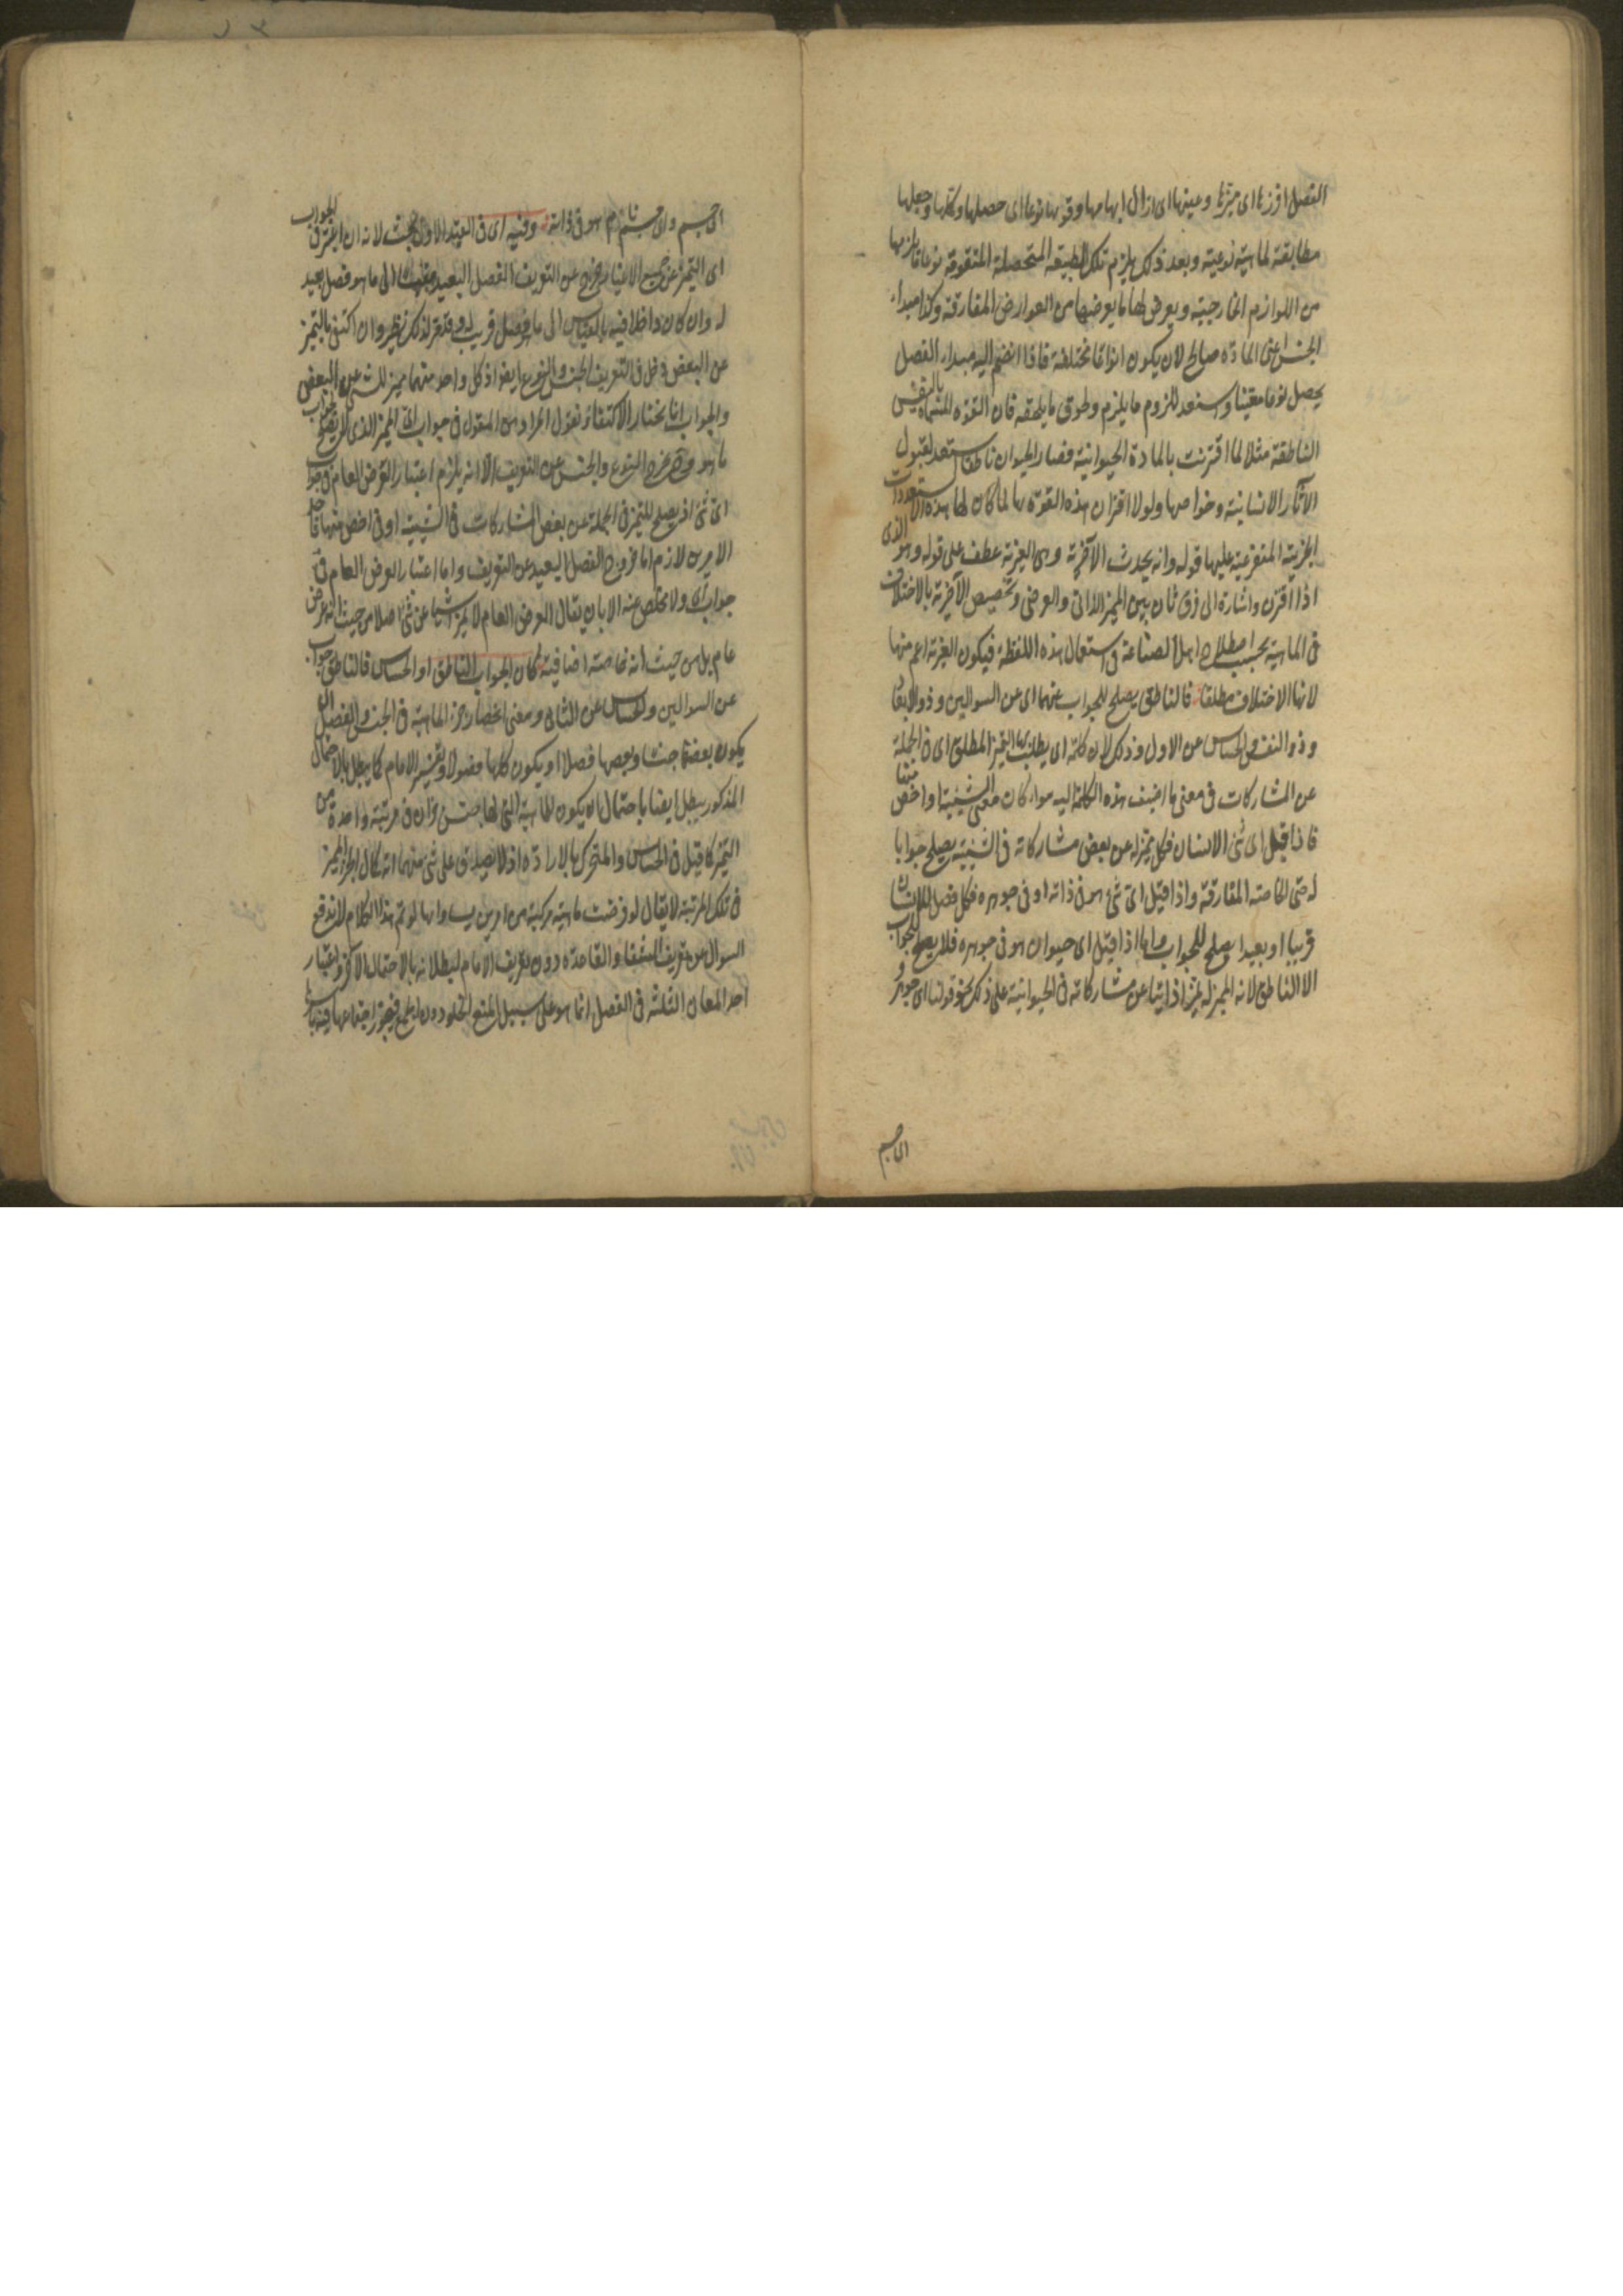 الفصل افرزها اى ميزها وعينها اى ازال ابهامها وقومها نوعا اى حصلها وكملها وجعلها
مطابقة لماهية نوعية وبعد ذلك يلزم تلك الطبيعة المتحصلة المتقومة نوعا ما يلزمها
من اللوازم الخارجية ويعرض لها ما يعرضها من العوارض المفارقة وكذا مبداء
الجنس اعنى المادة صالح لان يكون انواعا مختلفة فاذا انضم اليه مبداء الفصل
يحصل نوعا معينا واستعد للزوم ما يلزم ولحوق ما يلحقه فان القوة المسماة بالنفس
الناطقة مثلا لما اقترنت بالمادة الحيوانية فصار الحيوان ناطقا استعد لقبول
الآثار الانسانية وخواصها ولولا اقتران هذه القوة بها لما كان لها هذه الاستعدادات
الجزيية المتفرعة عليها قوله وانه يحدث الآخرية وهى الغيرية عطف على قوله وهو الذى
اذا اقترن واشارة الى فرق ثان بين المميز الذاتى والعرضى وتخصيص الآخرية بالاختلاف
فى الماهية بحسب اصطلاح اهل الصناعة فى استعمال هذه اللفظة فيكون الغيرية اعم منها
لانها الاختلاف مطلقا فالناطق يصلح للجواب عنهما اى عن السوالين وذو الابعاد
وذو النفس والحساس عن الاول وذلك لان كلمة اى يطلب بها التميز المطلق اى فى الجملة
عن المشاركات فى معنى ما اضيف هذه الكلمة اليه سواء كان معنى الشيئية او اخص منها
فاذا قيل اى شئ الانسان فكل مميز له عن بعض مشاركاته فى الشيئية يصلح جوابا
له حتى الخاصة المفارقة واذا قيل اى شئ هو فى ذاته او فى جوهره فكل فصل للانسان
قريبا او بعيدا يصلح للجواب واما اذا قيل اى حيوان هو فى جوهره فلا يصلح للجواب
الا الناطق لانه المميز له تميزا ذاتيا عن مشاركاته فى الحيوانية وعلى ذلك نحو قولنا اى جوهر
اى جسم
اى جسم واى جسم نام هو فى ذاته وفيه اى فى القيد الاول بحث لانه ان اعتبر فى الجواب
اى التميز عن جميع الاغيار خرج عن التعريف الفصل البعيد مقيسا الى ما هو فصل بعيد
له وان كان داخلا فيه بالقياس الى ما هو فصل قريب له وقد مر لذلك نظير وان اكتفى بالتميز
عن البعض دخل فى التعريف الجنس والنوع ايضا اذ كل واحد منهما مميز للشئ عن البعض
والجواب انا نختار الاكتفاء ونقول المراد من المقول فى جواب اى المميز الذى لا يصلح لجواب
ما هو وح خرج النوع والجنس عن التعريف الا انه يلزم اعتبار العرض العام فى جواب
اى شئ اذ يصلح للتميز فى الجملة عن بعض المشاركات فى الشيئية او فى اخص منها فاحد
الامرين لازم اما خروج الفصل البعيد عن التعريف واما اعتبار العرض العام فى
جواب اى ولا مخلص عنه الا بان يقال العرض العام لا يميز شيئا عن شئ اصلا من حيث انه عرض
عام بل من حيث انه خاصة اضافية كان الجواب الناطق او الحساس فالناطق جواب
عن السوالين والحساس عن الثانى ومعنى انحصار جزء الماهية فى الجنس والفصل ان
يكون بعضها جنسا وبعضها فصلا او يكون كلها فصولا وتفسير الامام كما يبطل بالاحتمال
المذكور يبطل ايضا باحتمال ان يكون للماهية التى لها جنس جزآن فى مرتبة واحدة من
التميز كما قيل فى الحساس والمتحرك بالارادة اذ لا يصدق على شئ منهما انه كمال الجزء المميز
فى تلك المرتبة لا يقال لو فرضت ماهية مركبة من امرين يساويانها لو تم هذا الكلام لاندفع
السوال عن تعريف الشفاء والقاعدة دون تعريف الامام لبطلانه بالاحتمال الآخر واعتبار
احد المعان الثلثة فى الفصل انما هو على سبيل المنع الخلو دون الجمع فيجوز اجتماعها فيه